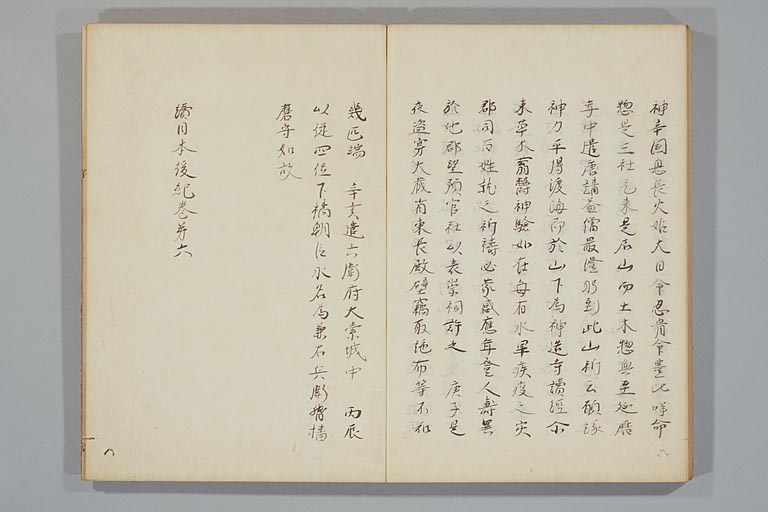 神辛国息長火姫大目命忍骨命豊比咩命
惣是三社元来是石山而土木惣無至延暦
年中遣唐請益僧最澄躬到此山祈云願縁
神力平得渡海即於山下為神造寺讀經尓
来草木蓊欝神驗如在毎有水旱疾疫之灾
郡司百姓就之祈禱必蒙感應年登人壽異
於他郡望預官社以表崇祠許之 庚子是
夜盗穿大蔵省東長殿壁竊取絁布等不知
幾匹端 辛亥遣六衛府大索城中 丙辰
以従四位下橘朝臣氷名為兼右兵衛督播
磨守如故
續日本後紀巻第六